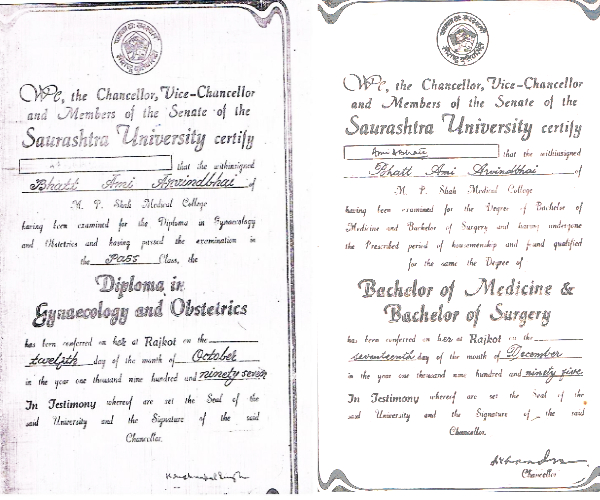 We, the Chancellor, Vice-Chancellor
and Members of the Senate of the
Saurashtra University certify
that the withinsigned
Bhatt Ami Arvindbhai of
M. P. Shah Medical College
having been examined for the Diploma in Gynaecology
and Obstetrics and having passed the examination in
the Pass Class, the
Diploma in
Gynaecology and Obstetrics
has been conferred on her at Rajkot on the
twelfth day of the month of October
in the year one thousand nine hundred and ninety seven
In Testimony whereof are set the Seal of the
said University and the Signature of the said
Chancellor.
We, the Chancellor, Vice-Chancellor
and Members of the Senate of the
Saurashtra University certify
that the withinsigned
Bhatt Ami Arvindbhai of
M. P. Shah Medical College
having been examined for the Degree of Bachelor of
Medicine and Bachelor of Surgery and having undergone
the Prescribed period of housemenship and found qualified
for the same the Degree of
Bachelor of Medicine &
Bachelor of Surgery
has been conferred on her at Rajkot on the
seventeenth day of the month of December
in the year one thousand nine hundred and ninety five
In Testimony whereof are set the Seal of the
said University and the Signature of the said
Chancellor.
Chancellor